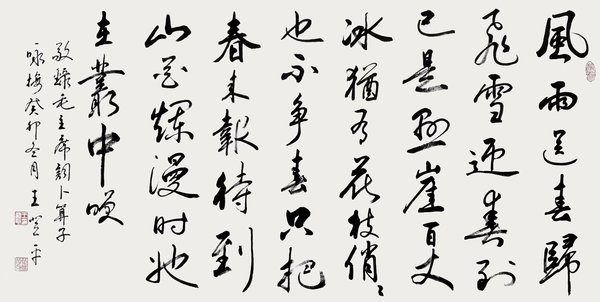 風雨送春歸
飛雪迎春到
已是懸崖百丈
冰猶有花枝俏〻
也不争春只把
春來報待到
山花爛漫時她
在叢中咲
敬錄毛主席詞卜算子
咏梅癸卯冬月王平